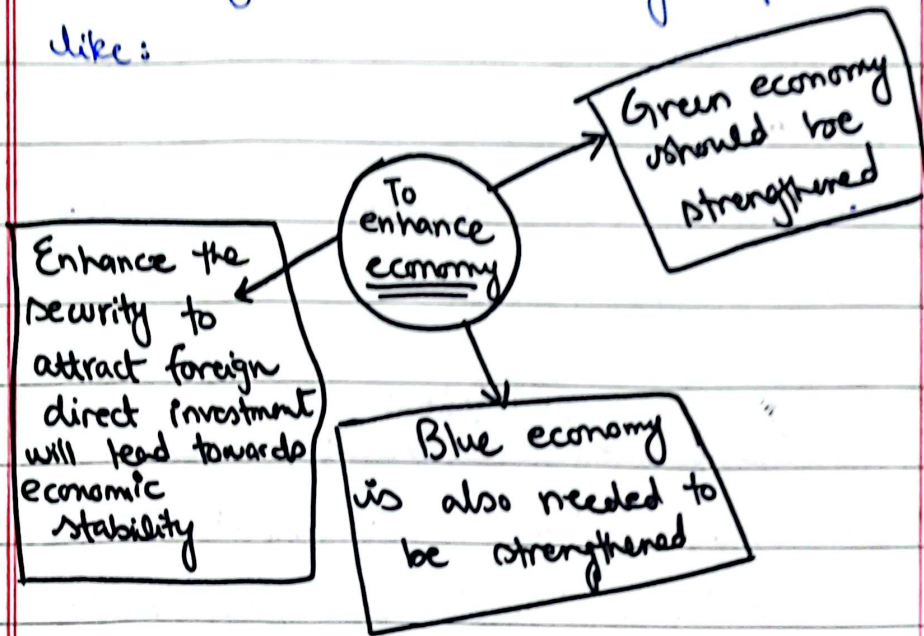 like:
To
enhance
economy
Green economy
should be
strengthened
Enhance the
security to
attract foreign
direct investment
will lead towards
economic
stability
Blue economy
is also needed to
be strengthened